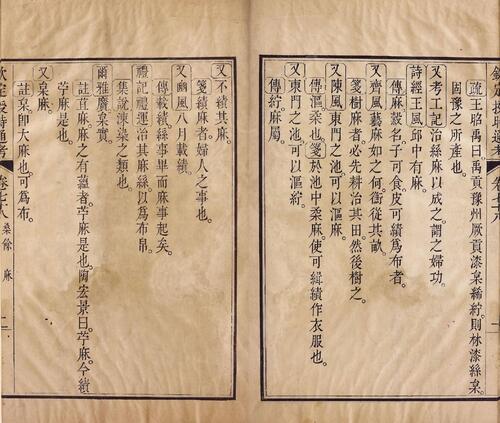 疏王昭禹曰禹貢豫州厥貢漆枲絺紵。則林漆絲枲。
固豫之所產也
又考工記治絲麻以成之。謂之婦功。
詩經王風邱中有麻。
傳麻穀名子可食皮可績爲布者。
又齊風蓺麻如之何。衡從其畝。
箋樹麻者必先耕治其田。然後樹之。
又陳風東門之池。可以漚麻。
傳漚柔也。箋於池中柔麻。使可緝績作衣服也。
又東門之池。可以漚紵。
傳紵麻屬。
又不績其麻。
箋績麻者婦人之事也。
又豳風八月載績。
傳載績絲事畢而麻事起矣。
禮記禮運治其麻絲以爲布帛。
集說湅染之類也。
爾雅黂枲實。
註苴麻。麻之有蘊者。苧麻是也。陶宏景曰苧麻。今績
苧麻是也。
又枲麻。
註枲卽大麻也。可爲布。
定授時通考
桑餘 麻
二